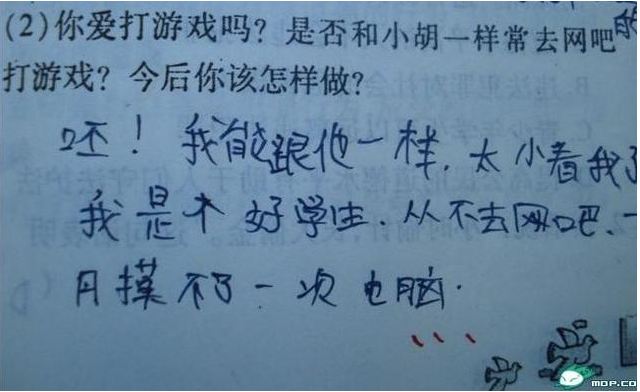 (2)你爱打游戏吗？是否和小胡一样常去网吧的
打游戏？今后你该怎样做？
呸！我能跟他一样，太小看我了
我是个好学生，从不去网吧，一
月摸不了一次电脑.
MOP.CO